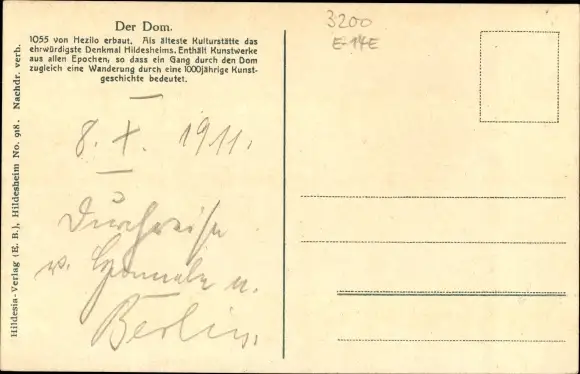 Der Dom.
1055 von Hezilo erbaut. Als älteste Kulturstätte das
ehrwürdigste Denkmal Hildesheims. Enthält Kunstwerke
aus allen Epochen, so dass ein Gang durch den Dom
zugleich eine Wanderung durch eine 1000jährige Kunst-
geschichte bedeutet.
3200
E-14E
8. X. 1911.
Durchreise
v. n.
Berlin.
Hildesia-Verlag (E. B.), Hildesheim No. 918. Nachdr. verb.